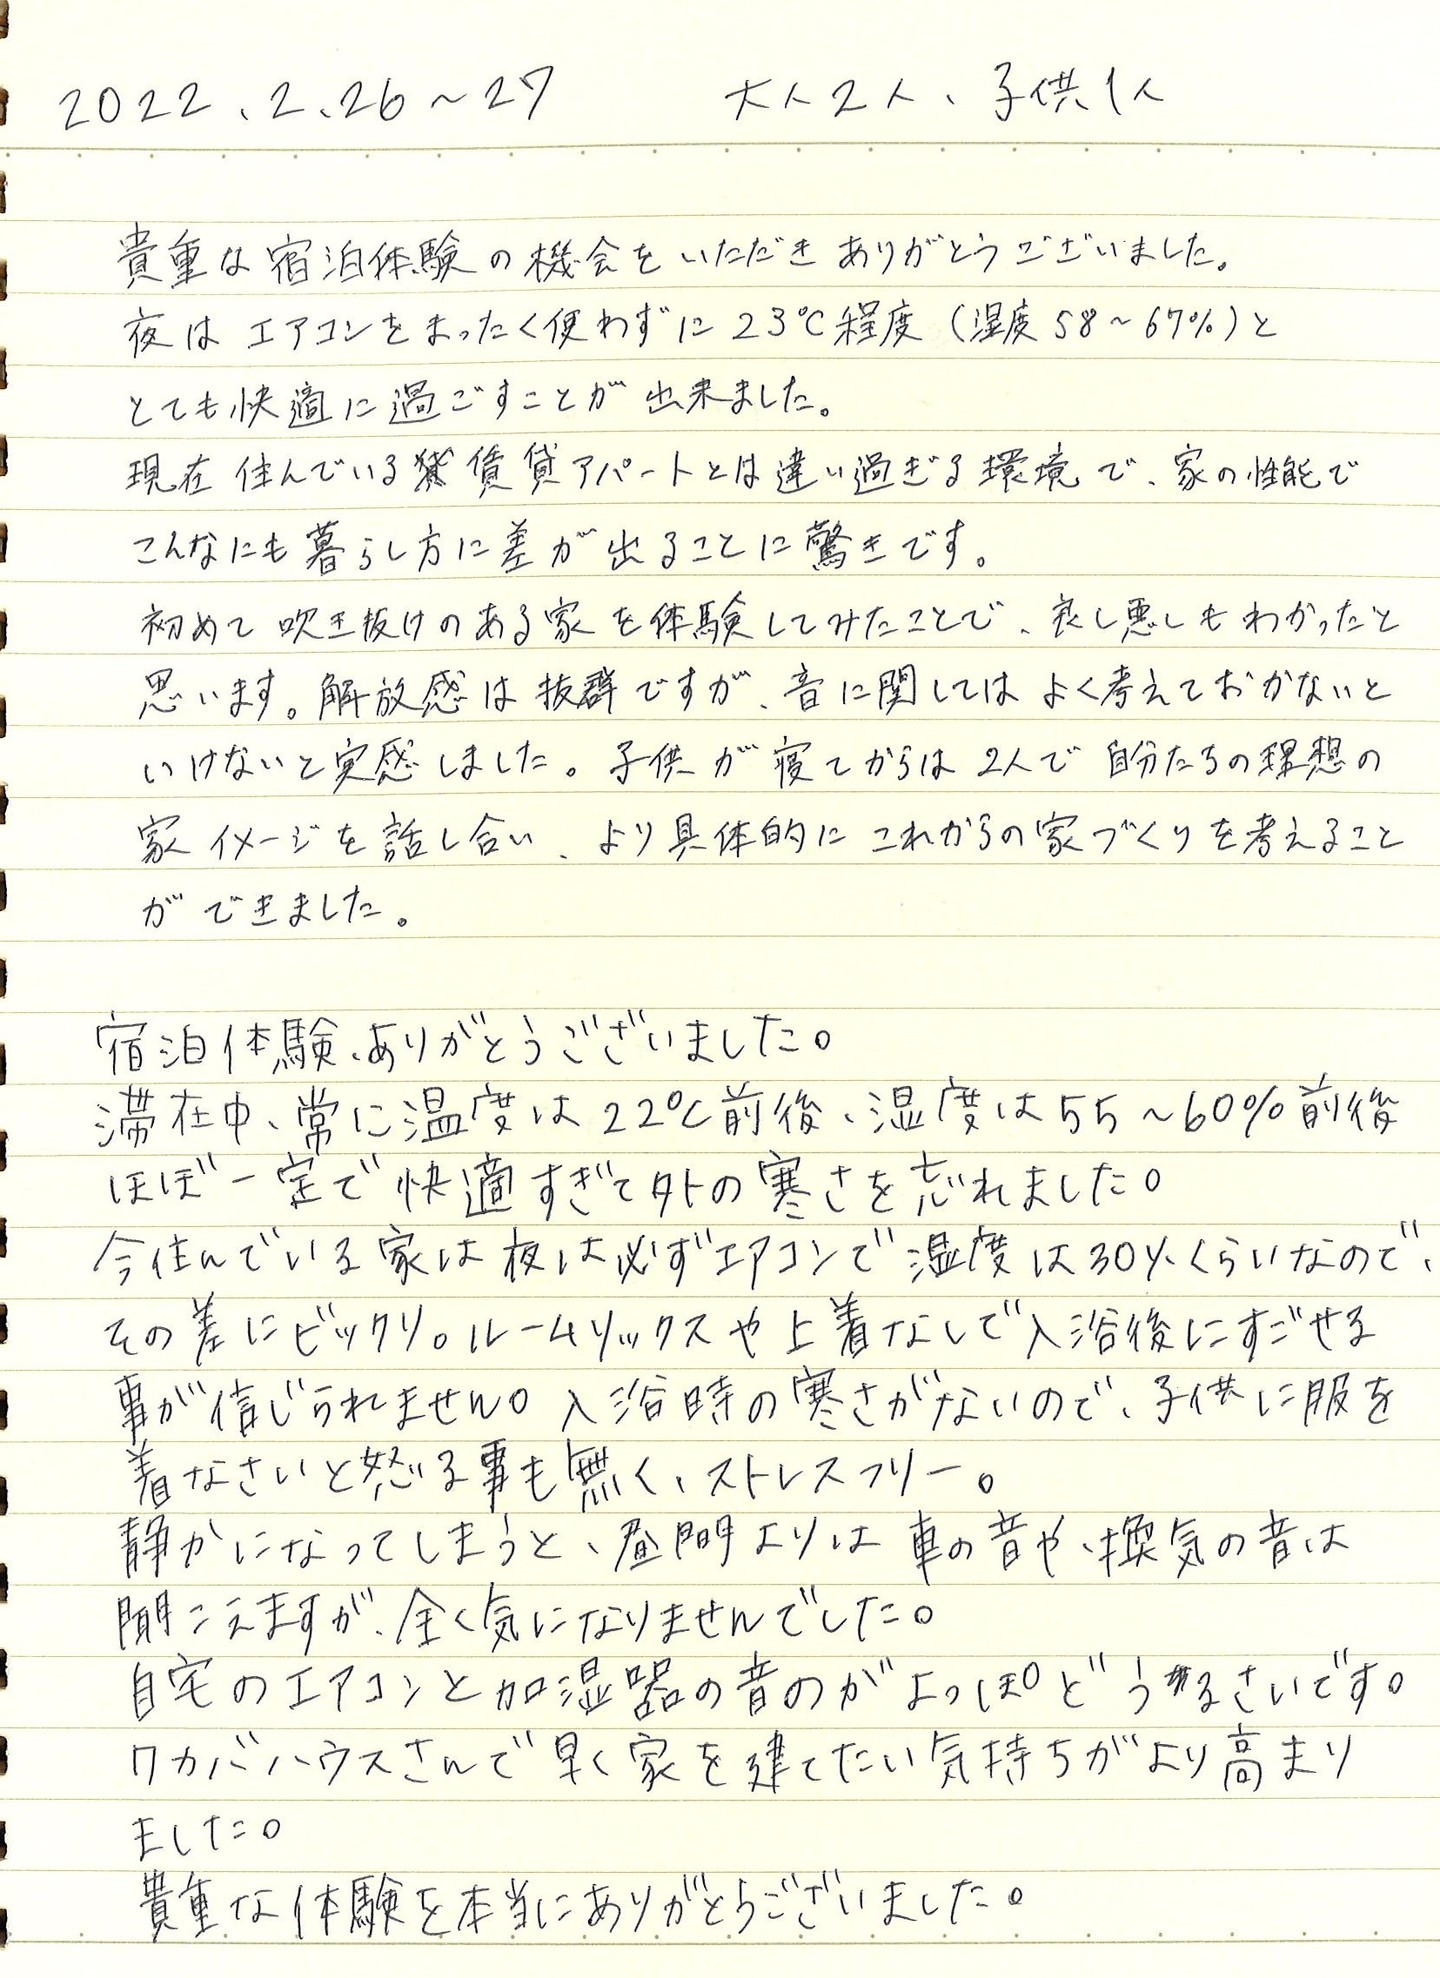 2022.2.26～27　大人2人、子供1人
貴重な宿泊体験の機会をいただきありがとうございました。
夜はエアコンをまったく使わずに23℃程度（湿度58～67%）と
とても快適に過ごすことが出来ました。
現在住んでいる賃貸アパートとは違い過ぎる環境で、家の性能で
こんなにも暮らし方に差が出ることに驚きです。
初めて吹き抜けのある家を体験してみたことで、良し悪しもわかったと
思います。解放感は抜群ですが、音に関してはよく考えておかないと
いけないと実感しました。子供が寝てからは2人で自分たちの理想の
家イメージを話し合い、より具体的にこれからの家づくりを考えること
ができました。
宿泊体験、ありがとうございました。
滞在中、常に温度は22℃前後、湿度は55～60%前後
ほぼ一定で快適すぎて外の寒さを忘れました。
今住んでいる家は夜は必ずエアコンで湿度は30%くらいなので、
その差にビックリ。ルームソックスや上着なしで入浴後にすごせる
事が信じられません。入浴時の寒さがないので、子供に服を
着なさいと怒る事も無く、ストレスフリー。
静かになってしまうと、昼間よりは車の音や、換気の音は
聞こえますが、全く気になりませんでした。
自宅のエアコンと加湿器の音のがよっぽどうるさいです。
ワカバハウスさんで早く家を建てたい気持ちがより高まり
ました。
貴重な体験を本当にありがとうございました。